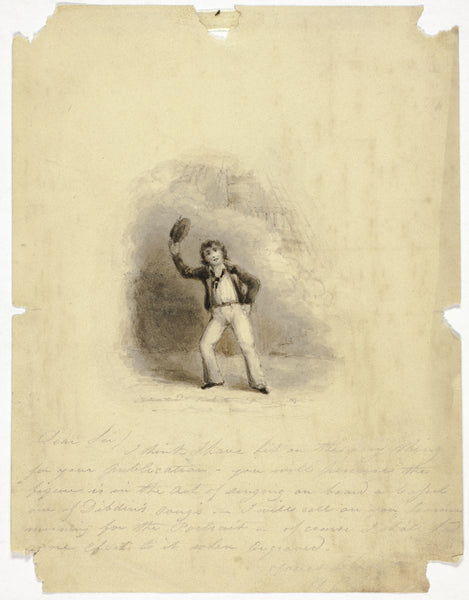 Dear Sir,
I think I have hit on the very thing
for your publication - you will perceive the
figure is in the act of singing on board a Vessel
one of Dibdin's songs - I will call on you
morning for the Portrait - of course I shall
effects to it when Engraved.